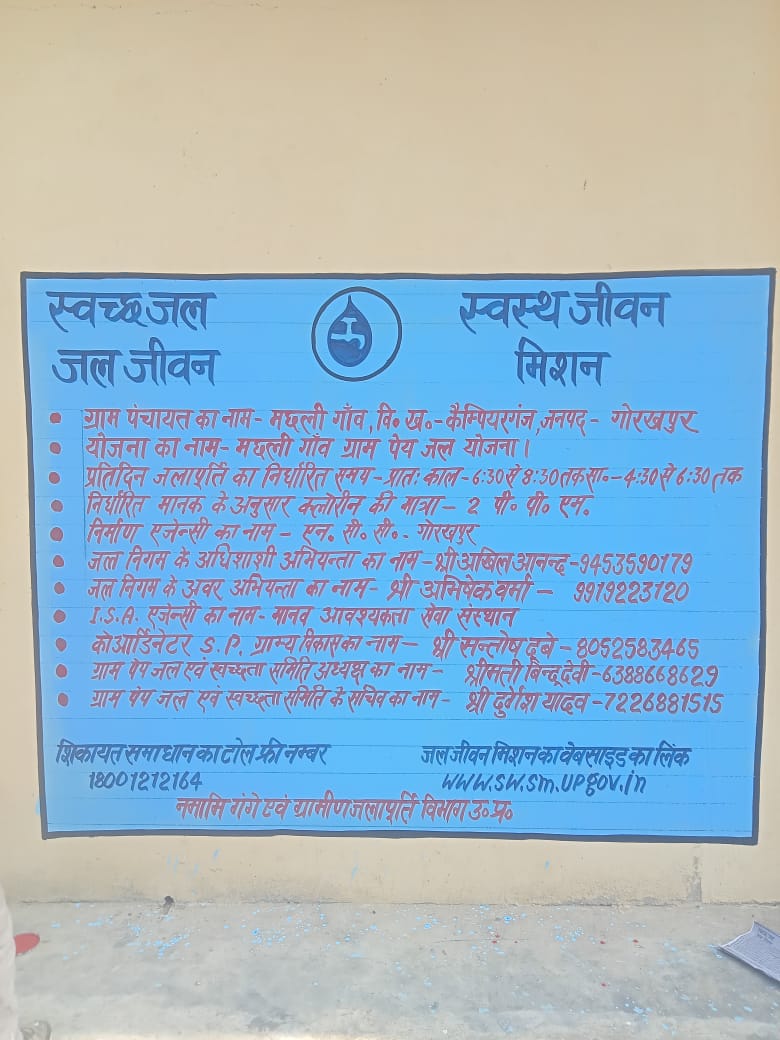 स्वच्छ जल स्वस्थ जीवन
जल जीवन मिशन
ग्राम पंचायत का नाम- मछली गाँव, वि॰ ख॰-कैम्पियरगंज, जनपद- गोरखपुर
योजना का नाम- मछली गाँव ग्राम पेय जल योजना।
प्रतिदिन जलापूर्ति का निर्धारित समय-प्रातः काल-6:30 से 8:30 तक सा॰-4:30 से 6:30 तक
निर्धारित मानक के अनुसार क्लोरीन की मात्रा- 2 पी॰ पी॰ एम.
निर्माण एजेन्सी का नाम- एन. सी. सी.- गोरखपुर
जल निगम के अधिशाशी अभियन्ता का नाम-श्री अखिल आनन्द-9453590179
जल निगम के अवर अभियन्ता का नाम- श्री अभिषेक वर्मा- 9919223120
I.S.A. एजेन्सी का नाम- मानव आवश्यकता सेवा संस्थान
कोआर्डिनेटर S.P. ग्राम्य विकास का नाम- श्री सन्तोष दूबे-8052583465
ग्राम पेय जल एवं स्वच्छता समिति अध्यक्ष का नाम- श्रीमती बिन्दू देवी-6388668629
ग्राम पेय जल एवं स्वच्छता समिति के सचिव का नाम- श्री दुर्वेश यादव-7226881515
शिकायत समाधान का टोल फ्री नम्बर जल जीवन मिशन का वेबसाइड का लिंक
18001212164 www.sw.sm.UPgov.in
नमामि गंगे एवं ग्रामीण जलापूर्ति विभाग उ॰प्र॰